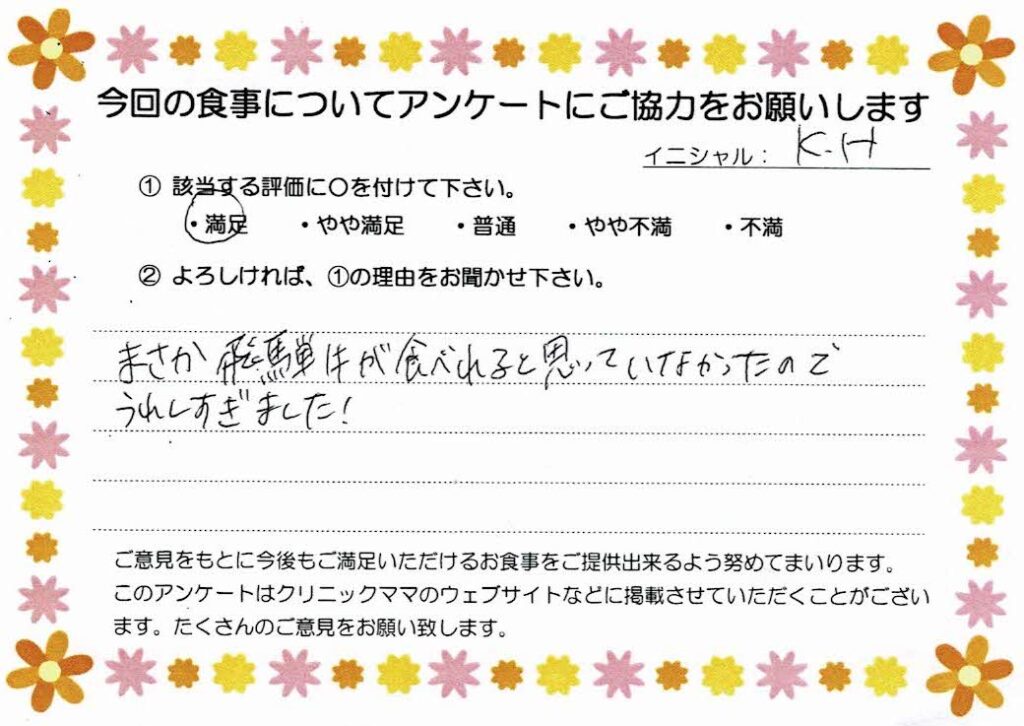 今回の食事についてアンケートにご協力をお願いします
イニシャル： K.H
① 該当する評価に〇を付けて下さい。
・満足 ・やや満足 ・普通 ・やや不満 ・不満
② よろしければ、①の理由をお聞かせ下さい。
まさか飛騨牛が食べれると思っていなかったので
うれしすぎました！
ご意見をもとに今後もご満足いただけるお食事をご提供出来るよう努めてまいります。
このアンケートはクリニックママのウェブサイトなどに掲載させていただくことがござい
ます。たくさんのご意見をお願い致します。